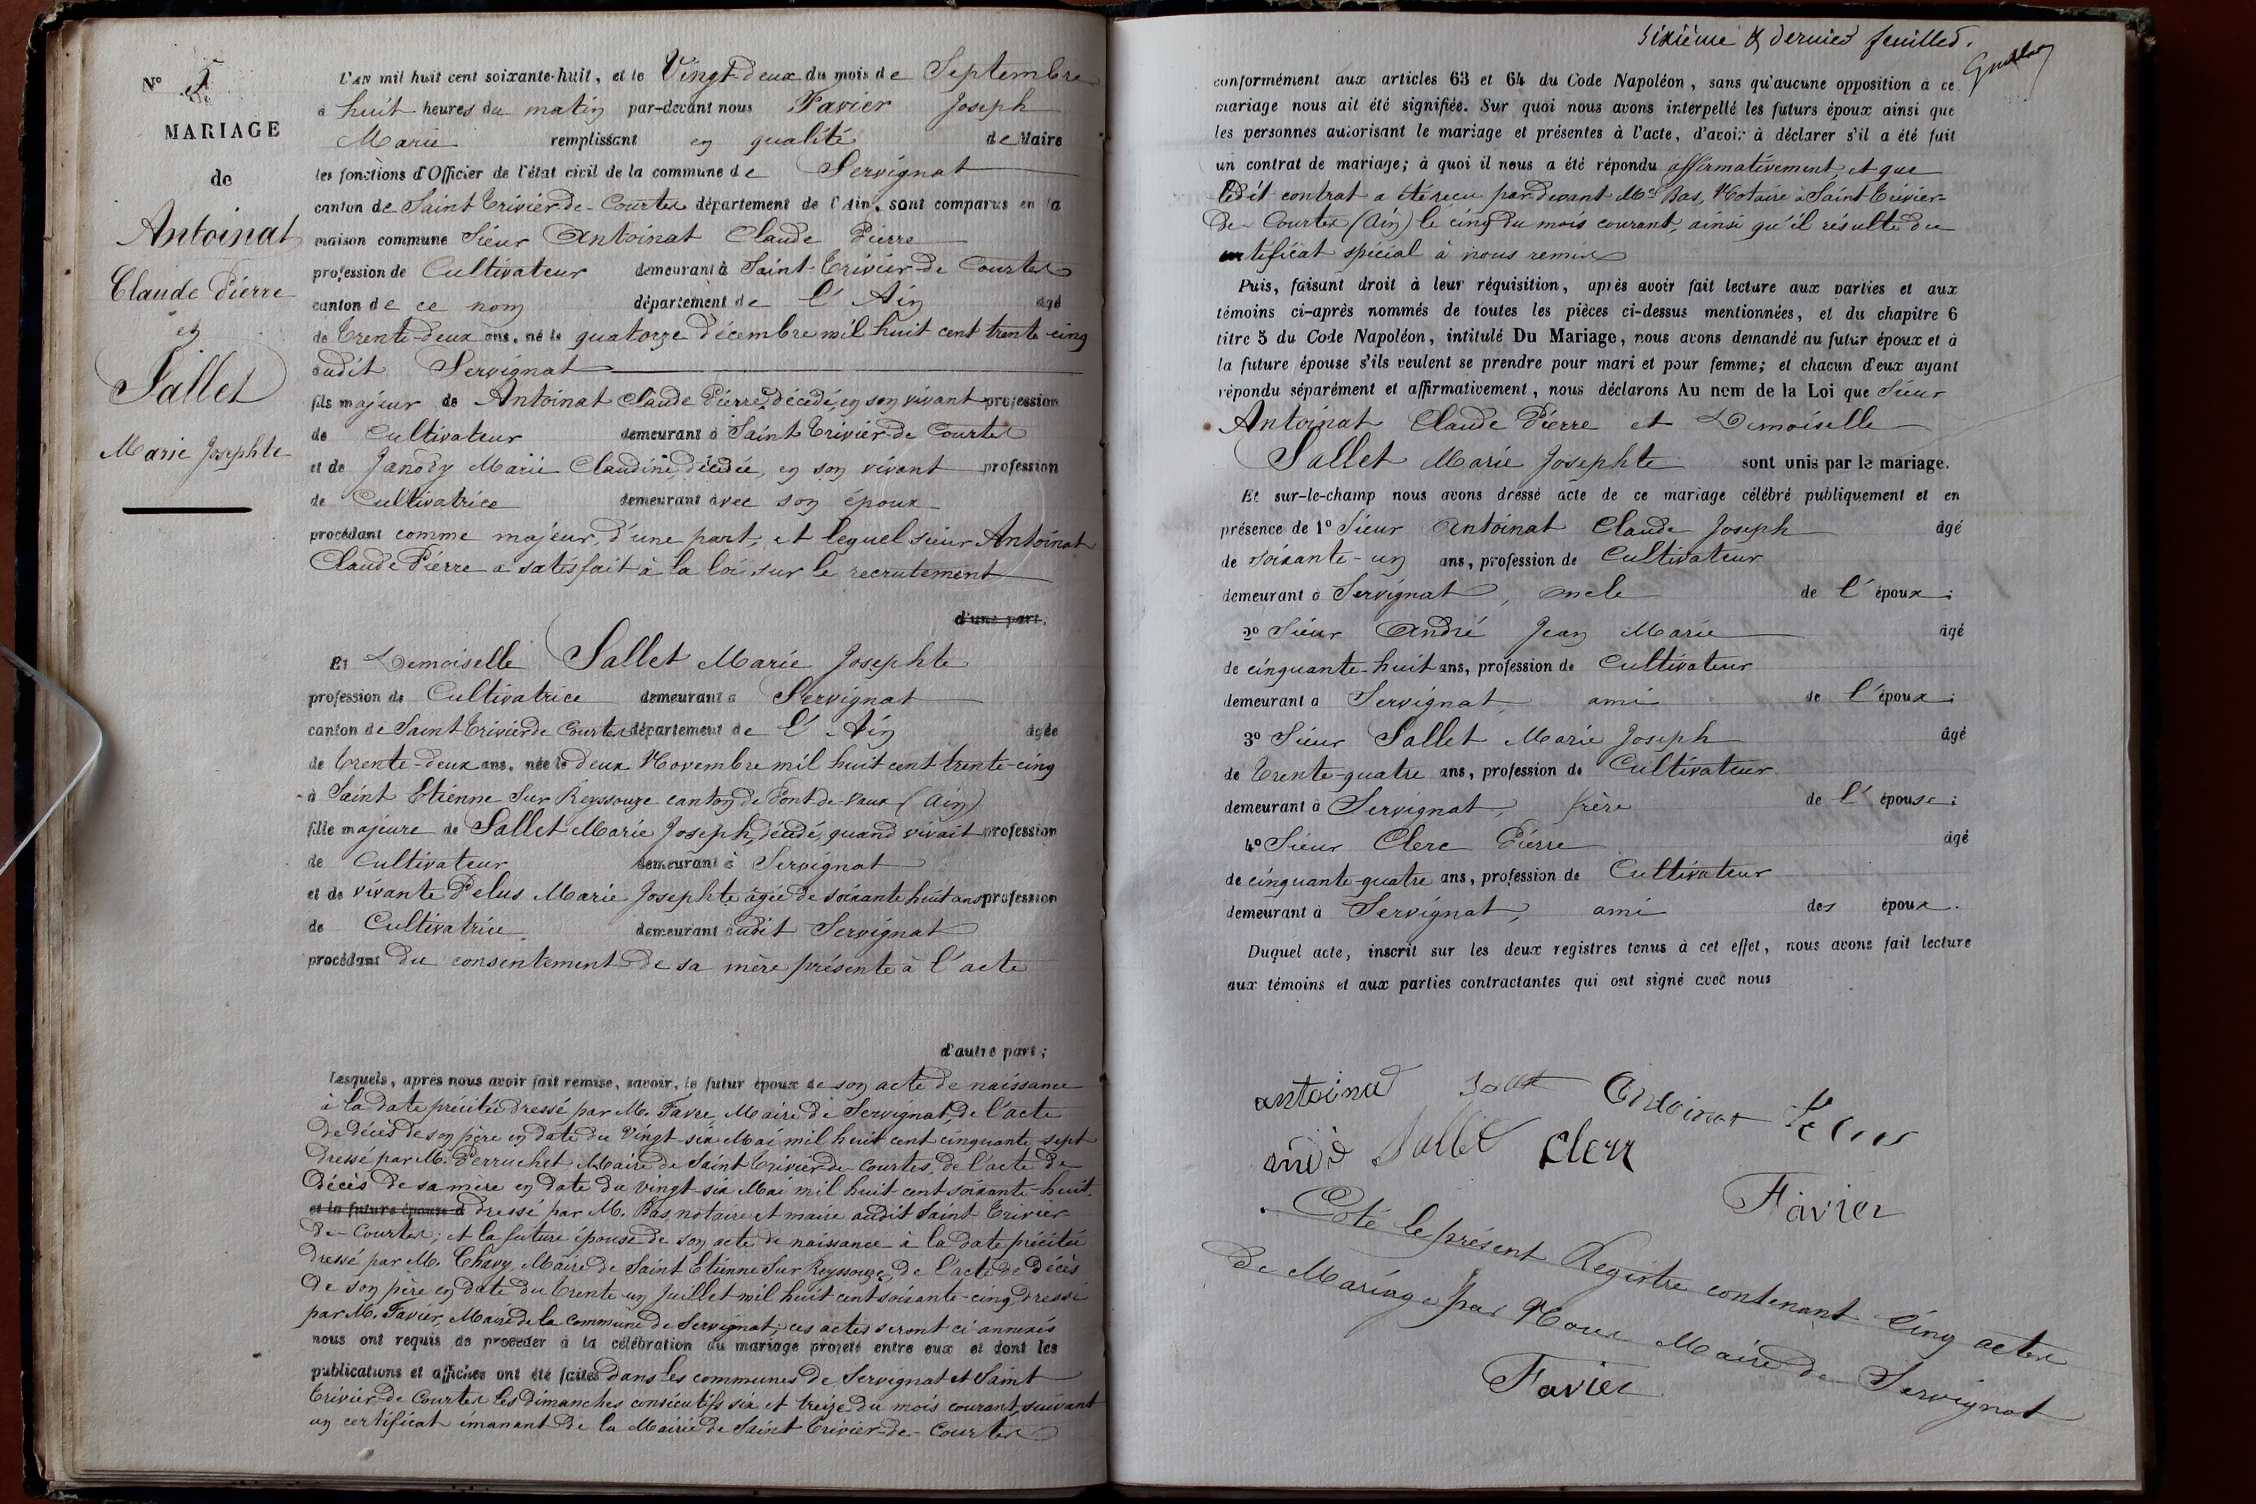 N° 5
MARIAGE
de
Antoinat
Claude Pierre
et
Sallet
Marie Josephte
L'AN mil huit cent soixante-huit, et le Vingt-deux du mois de Septembre
à huit heures du matin par-devant nous Favier Joseph
Marie remplissant en qualité de Maire
les fonctions d'Officier de l'état civil de la commune de Servignat
canton de Saint Trivier-de-Courtes département de l'Ain, sont comparus en la
maison commune Sieur Antoinat Claude Pierre
profession de Cultivateur demeurant à Saint-Trivier-de Courtes
canton de ce nom département de l'Ain âgé
de Trente-deux ans, né le quatorze décembre mil huit cent trente-cinq
audit Servignat
fils majeur de Antoinat Claude Pierre, décédé, en son vivant profession
de Cultivateur demeurant à Saint Trivier-de Courtes
et de Janody Marie Claudine, décédée, en son vivant profession
de Cultivatrice demeurant avec son époux
procédant comme majeur, d'une part, et lequel sieur Antoinat
Claude Pierre a satisfait à la loi sur le recrutement
d'une part,
Et Demoiselle Sallet Marie Josephte
profession de Cultivatrice demeurant à Servignat
canton de Saint Trivier de Courtes département de l'Ain âgée
de Trente-deux ans, née le deux Novembre mil huit cent trente-cinq
à Saint Etienne Sur Reyssouze canton de Pont-de-Vaux (Ain)
fille majeure de Sallet Marie Joseph, décédé, quand vivait profession
de Cultivateur demeurant à Servignat
et de vivante Pelus Marie Josephte âgée de soixante huit ans profession
de Cultivatrice demeurant audit Servignat
procédant du consentement de sa mère présente à l'acte
d'autre part;
Lesquels, après nous avoir fait remise, savoir, le futur époux de son acte de naissance
à la date précitée dressé par M. Favre Maire de Servignat, de l'acte
de décès de son père en date du Vingt-six Mai mil huit cent cinquante-sept
dressé par M. Perruchet Maire de Saint Trivier-de-Courtes, de l'acte de
Décès de sa mère en date du vingt-six Mai mil huit cent soixante-huit
et la future épouse d dressé par M. Bas, notaire et maire audit Saint-Trivier
de-Courtes; et la future épouse de son acte de naissance à la date précitée
dressé par M. Chavy, Maire de Saint Etienne Sur Reyssouze, de l'acte de décès
de son père en date du trente-un Juillet mil huit cent soixante-cinq, dressé
par M. Favier, Maire de la commune de Servignat; ces actes seront ci-annexés
nous ont requis de procéder à la célébration du mariage projeté entre eux et dont les
publications et affiches ont été faites dans les communes de Servignat et Saint
Trivier-de Courtes les dimanches consécutifs six et treize du mois courant, suivant
un certificat émanant de la Mairie de Saint Trivier-de-Courtes
Sixième & dernier feuillet.
conformément aux articles 63 et 64 du Code Napoléon, sans qu'aucune opposition à ce
mariage nous ait été signifiée. Sur quoi nous avons interpellé les futurs époux ainsi que
les personnes autorisant le mariage et présentes à l'acte, d'avoir à déclarer s'il a été fait
un contrat de mariage; à quoi il nous a été répondu affirmativement, et que
ledit contrat a été reçu par-devant Me Bas, Notaire à Saint-Trivier-
de-Courtes (Ain) le cinq du mois courant, ainsi qu'il résulte du
certificat spécial à nous remis
Puis, faisant droit à leur réquisition, après avoir fait lecture aux parties et aux
témoins ci-après nommés de toutes les pièces ci-dessus mentionnées, et du chapitre 6
titre 5 du Code Napoléon, intitulé Du Mariage, nous avons demandé au futur époux et à
la future épouse s'ils veulent se prendre pour mari et pour femme; et chacun d'eux ayant
répondu séparément et affirmativement, nous déclarons Au nom de la Loi que Sieur
Antoinat Claude Pierre et Demoiselle
Sallet Marie Josephte sont unis par le mariage.
Et sur-le-champ nous avons dressé acte de ce mariage célébré publiquement et en
présence de 1° Sieur Antoinat Claude Joseph âgé
de soixante-un ans, profession de Cultivateur
demeurant à Servignat, oncle de l'époux;
2° Sieur André Jean Marie âgé
de cinquante-huit ans, profession de Cultivateur
demeurant à Servignat, ami de l'époux;
3° Sieur Sallet Marie Joseph âgé
de Trente-quatre ans, profession de Cultivateur
demeurant à Servignat, frère de l'épouse;
4° Sieur Clerc Pierre âgé
de cinquante-quatre ans, profession de Cultivateur
demeurant à Servignat, ami des époux.
Duquel acte, inscrit sur les deux registres tenus à cet effet, nous avons fait lecture
aux témoins et aux parties contractantes qui ont signé avec nous
antoinat Antoinat
Sallet Clerc
Favier
Coté le présent Registre contenant Cinq actes
de Mariage par Nous Maire de Servignat
Favier